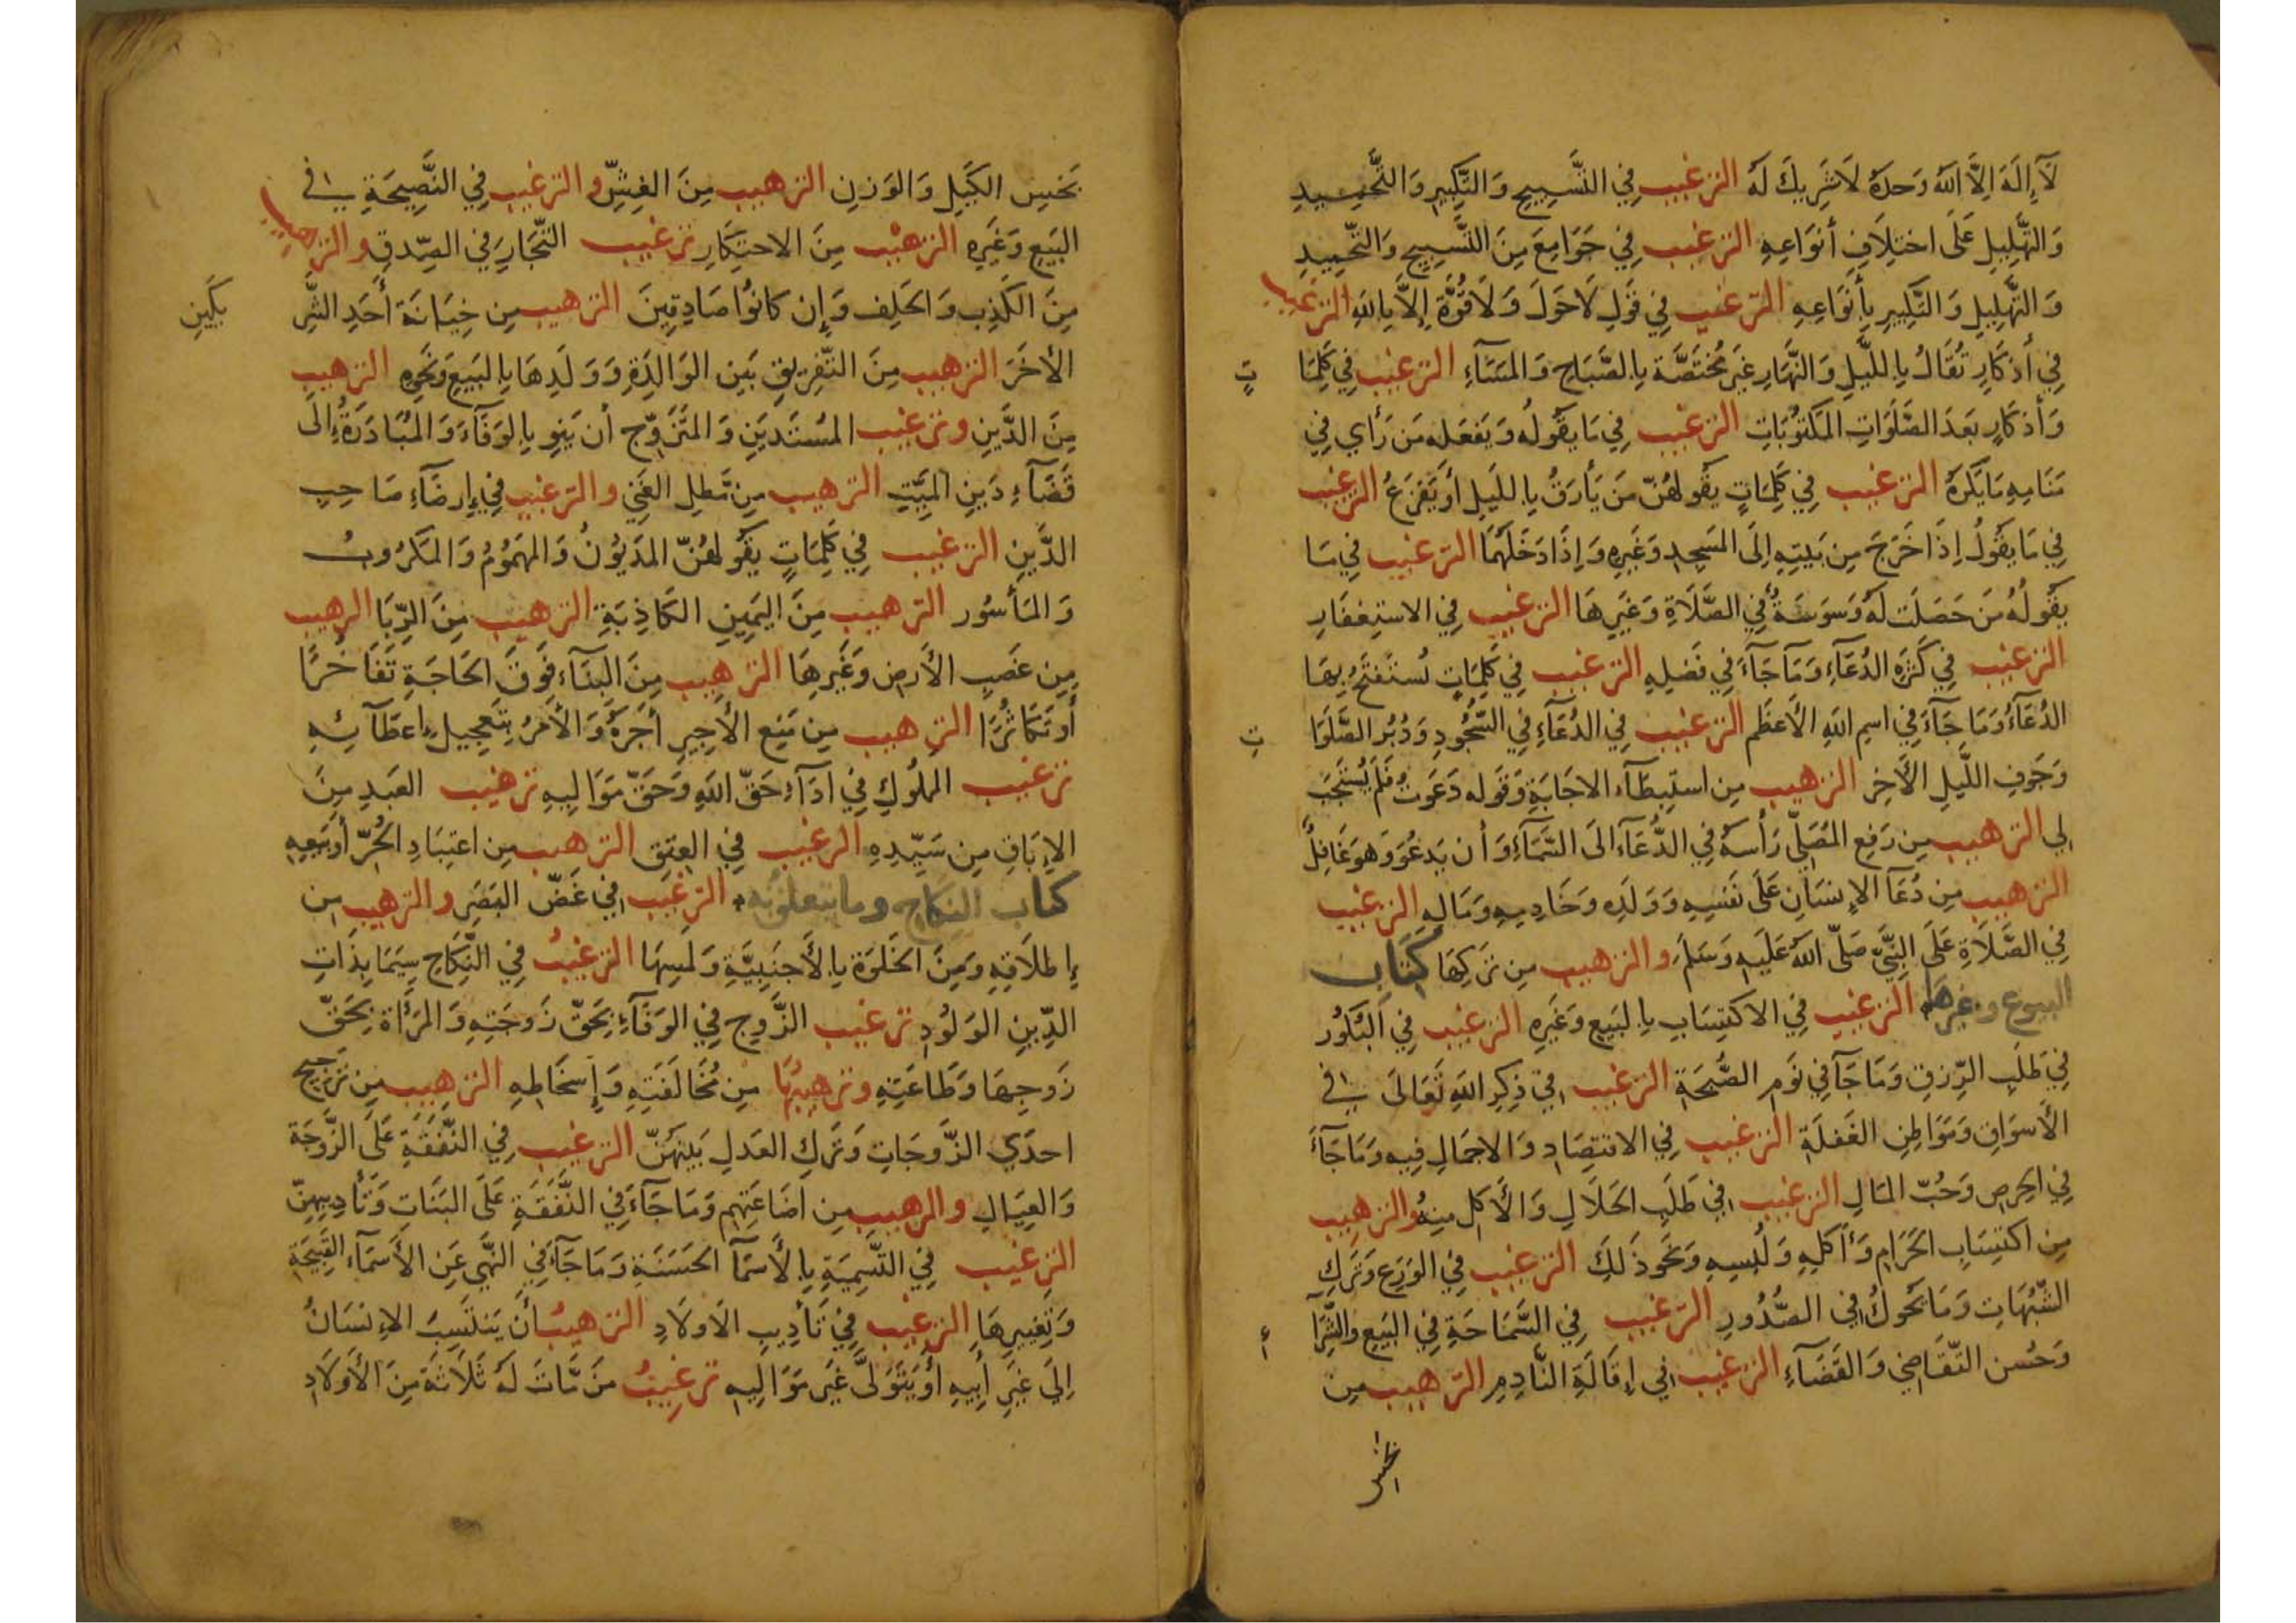 لَآ إِلَهَ إِلاَّ اللهُ وَحدَهُ لَا شَرِيكَ لَهُ الترغيب فِي التَّسبِيحِ وَالتَّكبِيرِ وَالتَّحمِيدِ
وَالتَّهلِيلِ عَلَى اختِلَافِ أنوَاعِهِ الترغيب فِي جَوَامِعَ مِنَ التَّسبِيحِ وَالتَّحمِيدِ
وَالتَّهلِيلِ وَالتَّكبِيرِ بِأنوَاعِهِ الترغيب فِي قَولِ لَا حَولَ وَلَا قُوَّةَ إلاَّ بِاللهِ الترغيب
فِي أذكَارٍ تُقَالُ بِاللَّيلِ وَالنَّهَارِ غَيرَ مُختَصَّة بِالصَّبَاحِ وَالمَسَآءِ الترغيب فِي كَلِمَا تٍ
وَأذكَارٍ بَعدَ الصَّلَوَاتِ المَكتُوبَاتِ الترغيب فِي مَا يَقُولُهُ وَيَفعَلهُ مَن رَأي فِي
مَنَامِهِ مَا يَكرَهُ الترغيب فِي كَلِمَاتٍ يَقُولهُنّ مَن يَأرَقُ بِاللَيلِ أو يَفزَعُ الترغيب
فِي مَا يَقُولُ إذَا خَرَجَ مِن بَيتِهِ إلَى المَسجِدِ وَغَيرِهِ وَإذَا دَخَلَهُمَا الترغيب فِي مَا
يَقُولُهُ مَن حَصَلَت لَهُ وَسوَسَةٌ فِي الصَّلَاةِ وَغَيرِهَا الترغيب فِي الاستِغفَارِ
الترغيب فِي كَثرَةِ الدُعَآءِ وَمَا جَآءَ فِي فَضلِهِ الترغيب فِي كَلِمَاتٍ تُستَفتَحُ بِهَا
الدُعَآءُ وَمَا جَآءَ فِي اسمِ اللهِ الأعظَم الترغيب فِي الدُعَآءِ فِي السُّجُودِ وَدُبُرِ الصَّلَوَا تِ
وَجَوفِ اللَّيلِ الأخِر الترهيب مِن استِبطَآء الاجَابَةِ وَقَوله دَعَوتُ فَلَم يُستَجَب
لِي الترهيب مِن رَفعِ المُصَلّي رَأسَهُ فِي الدُّعَآء الَى السَّمَآءِ وَأن يَدعُوَ وَهوَ غَافِلٌ
الترهيب مِن دُعَآ الإنسَانِ عَلَى نَفسِهِ وَوَلَدِهِ وَخَادِمِهِ وَمَالِهِ الترغيب
فِي الصَّلَاةِ عَلَى النَّبِيّ صَلَّى اللهُ عَلَيهِ وَسَلَّم والترهيب مِن تَركِهَا كتَاب
البيوع وغيرها الترغيب فِي الاكتِسَابِ بِالبَيعِ وَغَيرِهِ الترغيب فِي البُكُور
فِي طَلَبِ الرِّزقِ وَمَا جَآ فِي نَومِ الصُّبحَةِ الترغيب فِي ذِكرِ اللهِ تَعَالَى فِي
الأَسوَاقِ وَمَوَاطِنِ الغَفلَةِ الترغيب فِي الاقتِصَادِ وَالاجمَالِ فِيهِ وَمَا جَآءَ
فِي الحِرصِ وَحُبّ المَالِ الترغيب فِي طَلَبِ الحَلَالِ وَالأَكلِ مِنهُ والترهيب
مِن اكتِسَابِ الحَرَامِ وَأَكلِهِ وَلُبسِهِ وَنَحوِ ذَلِكَ الترغيب فِي الوَرَعِ وَتَركِ
الشُّبُهَاتِ وَمَا يَحُوكُ فِي الصُّدُورِ الترغيب فِي السَّمَاحَةِ فِي البَيعِ وَالشِّرَآ ءِ
وَحُسنِ التَّقَاضِي وَالقَضَآءِ الترغيب فِي إقَالَةِ النَّادِمِ الترهيب مِن
بخس
بَخسِ الكَيلِ وَالوَزنِ الترهيب مِنَ الغِشِّ والترغيب فِي النَّصِيحَةِ فِي
البَيعِ وَغَيرِهِ الترهيب مِنَ الاحتِكَارِ ترغيب التُّجَارِ فِي الصِّدقِ والترهيب
مِنَ الكَذِبِ وَالحَلِف وَإن كَانُوا صَادِقِينَ الترهيب مِن خِيَانَة أحَدِ الشَّرِ يكَينِ
الأخَرَ الترهيب مِنَ التَّفرِيقِ بَينَ الوَالِدَةِ وَوَلَدِهَا بِالبَيعِ وَنَحوِهِ الترهيب
مِنَ الدَّينِ وترغيب المُستَدِينِ وَالمُتَزَوّج أن يَنوِيَا الوَفَآءَ وَالمُبَادَرَةُ إلَى
قَضَآءِ دَينِ المَيِّتِ الترهيب مِن مَطلِ الغَنِيّ والترغيب فِي إرضَآءِ صَاحِبِ
الدَّينِ الترغيب فِي كَلِمَاتٍ يَقُولهُنّ المَديُونُ وَالمَهمُومُ وَالمَكرُوبُ
وَالمَأسُور الترهيب مِنَ اليَمِينِ الكَاذِبَةِ الترهيب مِنَ الرِّبَا الترهيب
مِن غَصبِ الأَرضِ وَغَيرِهَا الترهيب مِنَ البِنَآءِ فَوقَ الحَاجَةِ تَفَاخُرًا
أو تَكَاثُرًا الترهيب مِن مَنعِ الأَجِيرِ أجرَهُ وَالأَمرُ بِتَعجِيلِ اعطَآئِهِ
ترغيب المملُوكِ فِي ادَآءِ حَقّ اللهِ وَحَقّ مَوَالِيهِ ترهيب العَبدِ مِنَ
الإبَاقِ مِن سَيّدِهِ الترغيب فِي العِتقِ الترهيب مِن اعتِبَادِ الحُرّ أو بَيعِهِ
كتاب النكاح وما يتعلق به الترغيب فِي غَضّ البَصَرِ والترهيب مِن
إطلَاقِهِ وَمِنَ الخَلوَة بِالأَجنَبِيَّةِ وَلَمسِهَا الترغيبُ فِي النِّكَاحِ سِيَمَا بِذَاتِ
الدِّينِ الوَلُودِ ترغيب الزَّوجِ فِي الوَفَآءِ بِحَقّ زَوجَتِهِ وَالمَرأَة بِحَقّ
زَوجِهَا وَطَاعَتِهِ وترهيبُهَا مِن مُخَالَفَتِهِ وَإسخَاطِهِ الترهيب مِن تَرجِيحِ
احدَي الزَّوجَاتِ وَتَركِ العَدلِ بَينَهُنّ الترغيب فِي النَّفَقَةِ عَلَى الزَّوجَة
وَالعِيَالِ والترهيب مِن اضَاعَتِهِم وَمَا جَآءَ فِي النَّفَقَةِ عَلَى البَنَاتِ وَتَأدِيبِهِنّ
الترغيب فِي التَّسمِيَةِ بِالأَسمَآ الحَسَنَةِ وَمَا جَآءَ فِي النَّهي عَنِ الأَسمَآءِ القَبِيحَةِ
وَتَغيِيرِهَا الترغيب فِي تَأدِيبِ الَاولَادِ الترهيبُ أن يَنتَسِبَ الإنسَانُ
إلَى غَيرِ أَبِيهِ أو يَتَوَلَّى غَيرَ مَوَالِيهِ ترغيبُ مَن مَّاتَ لَهُ ثَلَاثَة مِنَ الأَولَادِ